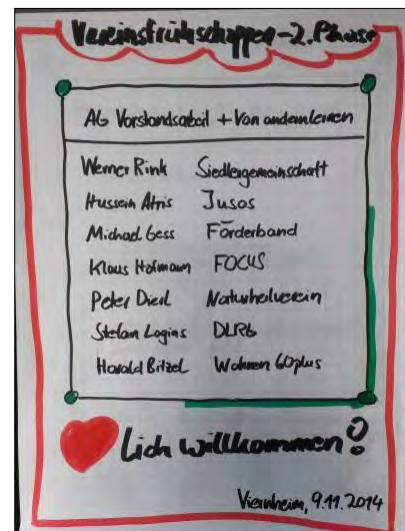 Vereinsfrühschoppen-2. Phase
AG Vorstandsarbeit + Von andern lernen
Werner Rink Siedlergemeinschaft
Hussein Atris Jusos
Michael Gess Förderband
Klaus Hofmann FOCUS
Peter Dierl Naturheilverein
Stefan Logins DLRG
Harald Bitzel Wohnen 60plus
lich willkommen!
Viernheim, 9.11.2014